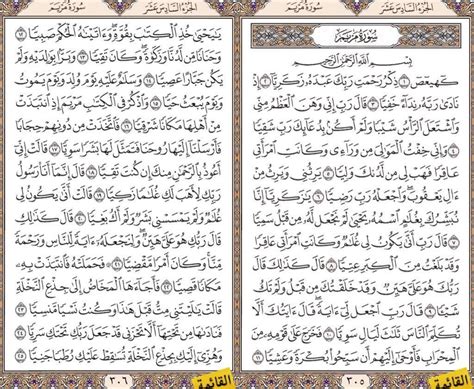 الجزء السادس عشر سورة مريم
سُورَةُ مَرْيَمَ
بِسْمِ ٱللَّهِ ٱلرَّحْمَٰنِ ٱلرَّحِيمِ
كٓهيعٓصٓ ١ ذِكْرُ رَحْمَتِ رَبِّكَ عَبْدَهُۥ زَكَرِيَّآ ٢ إِذْ
نَادَىٰ رَبَّهُۥ نِدَآءً خَفِيًّا ٣ قَالَ رَبِّ إِنِّى وَهَنَ ٱلْعَظْمُ مِنِّى
وَٱشْتَعَلَ ٱلرَّأْسُ شَيْبًا وَلَمْ أَكُنۢ بِدُعَآئِكَ رَبِّ شَقِيًّا
٤ وَإِنِّى خِفْتُ ٱلْمَوَٰلِىَ مِن وَرَآءِى وَكَانَتِ ٱمْرَأَتِى
عَاقِرًا فَهَبْ لِى مِن لَّدُنكَ وَلِيًّا ٥ يَرِثُنِى وَيَرِثُ مِنْ
ءَالِ يَعْقُوبَ وَٱجْعَلْهُ رَبِّ رَضِيًّا ٦ يَٰزَكَرِيَّآ إِنَّا
نُبَشِّرُكَ بِغُلَٰمٍ ٱسْمُهُۥ يَحْيَىٰ لَمْ نَجْعَل لَّهُۥ مِن قَبْلُ سَمِيًّا
٧ قَالَ رَبِّ أَنَّىٰ يَكُونُ لِى غُلَٰمٌ وَكَانَتِ ٱمْرَأَتِى عَاقِرًا
وَقَدْ بَلَغْتُ مِنَ ٱلْكِبَرِ عِتِيًّا ٨ قَالَ كَذَٰلِكَ
قَالَ رَبُّكَ هُوَ عَلَىَّ هَيِّنٌ وَقَدْ خَلَقْتُكَ مِن قَبْلُ وَلَمْ تَكُ
شَيْـًٔا ٩ قَالَ رَبِّ ٱجْعَل لِّىٓ ءَايَةً قَالَ ءَايَتُكَ أَلَّا
تُكَلِّمَ ٱلنَّاسَ ثَلَٰثَ لَيَالٍ سَوِيًّا ١٠ فَخَرَجَ عَلَىٰ قَوْمِهِۦ مِنَ
ٱلْمِحْرَابِ فَأَوْحَىٰٓ إِلَيْهِمْ أَن سَبِّحُوا۟ بُكْرَةً وَعَشِيًّا ١١
٣٠٥ القائمة
الجزء السادس عشر سورة مريم
يَٰيَحْيَىٰ خُذِ ٱلْكِتَٰبَ بِقُوَّةٍ وَءَاتَيْنَٰهُ ٱلْحُكْمَ صَبِيًّا ١٢
وَحَنَانًا مِّن لَّدُنَّا وَزَكَوٰةً وَكَانَ تَقِيًّا ١٣ وَبَرًّۢا بِوَٰلِدَيْهِ وَلَمْ
يَكُن جَبَّارًا عَصِيًّا ١٤ وَسَلَٰمٌ عَلَيْهِ يَوْمَ وُلِدَ وَيَوْمَ يَمُوتُ
وَيَوْمَ يُبْعَثُ حَيًّا ١٥ وَٱذْكُرْ فِى ٱلْكِتَٰبِ مَرْيَمَ إِذِ ٱنتَبَذَتْ
مِنْ أَهْلِهَا مَكَانًا شَرْقِيًّا ١٦ فَٱتَّخَذَتْ مِن دُونِهِمْ حِجَابًا
فَأَرْسَلْنَآ إِلَيْهَا رُوحَنَا فَتَمَثَّلَ لَهَا بَشَرًا سَوِيًّا ١٧ قَالَتْ إِنِّىٓ
أَعُوذُ بِٱلرَّحْمَٰنِ مِنكَ إِن كُنتَ تَقِيًّا ١٨ قَالَ إِنَّمَآ أَنَا۠ رَسُولُ
رَبِّكِ لِأَهَبَ لَكِ غُلَٰمًا زَكِيًّا ١٩ قَالَتْ أَنَّىٰ يَكُونُ لِى
غُلَٰمٌ وَلَمْ يَمْسَسْنِى بَشَرٌ وَلَمْ أَكُ بَغِيًّا ٢٠ قَالَ كَذَٰلِكِ
قَالَ رَبُّكِ هُوَ عَلَىَّ هَيِّنٌ وَلِنَجْعَلَهُۥٓ ءَايَةً لِّلنَّاسِ وَرَحْمَةً
مِّنَّا وَكَانَ أَمْرًا مَّقْضِيًّا ٢١ فَحَمَلَتْهُ فَٱنتَبَذَتْ بِهِۦ
مَكَانًا قَصِيًّا ٢٢ فَأَجَآءَهَا ٱلْمَخَاضُ إِلَىٰ جِذْعِ ٱلنَّخْلَةِ
قَالَتْ يَٰلَيْتَنِى مِتُّ قَبْلَ هَٰذَا وَكُنتُ نَسْيًا مَّنسِيًّا ٢٣
فَنَادَىٰهَا مِن تَحْتِهَآ أَلَّا تَحْزَنِى قَدْ جَعَلَ رَبُّكِ تَحْتَكِ سَرِيًّا ٢٤
وَهُزِّىٓ إِلَيْكِ بِجِذْعِ ٱلنَّخْلَةِ تُسَٰقِطْ عَلَيْكِ رُطَبًا جَنِيًّا ٢٥
٣٠٦ القائمة